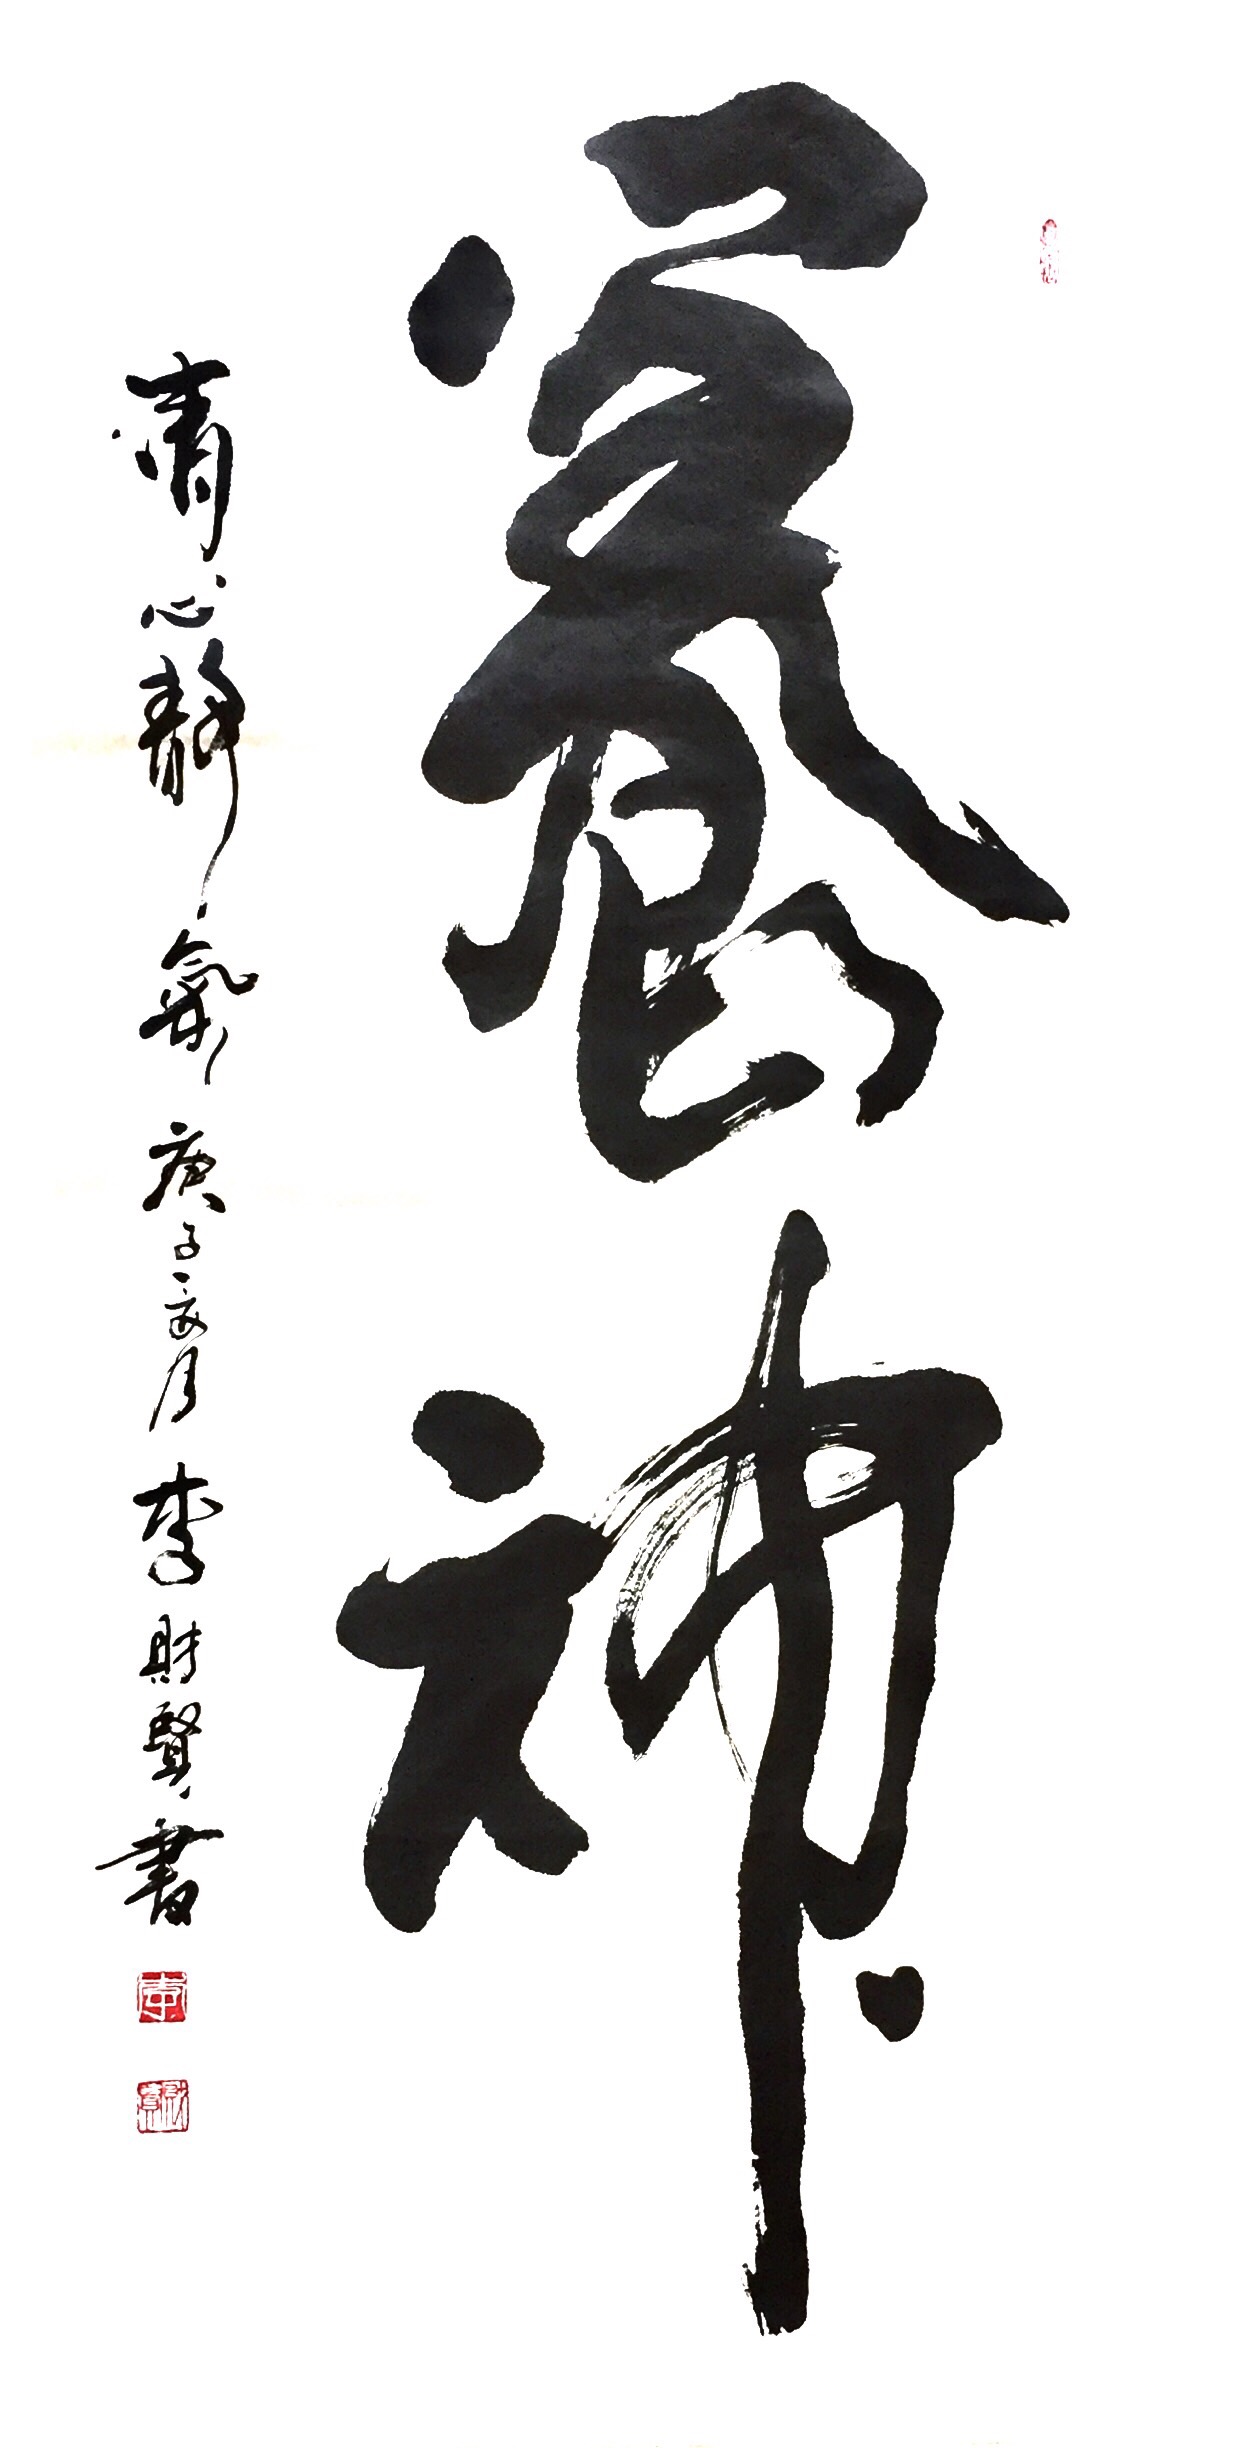 養神
清心靜氣 庚子亥月 李財賢書